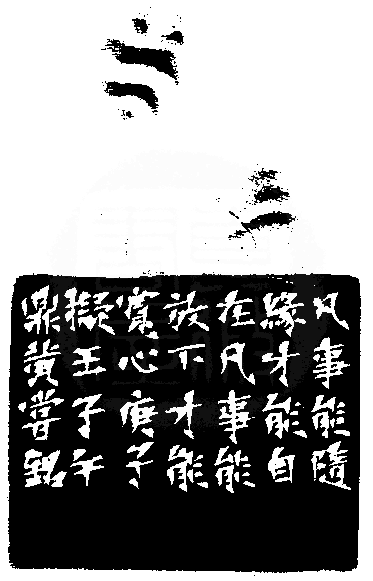 凡事能隨
緣才能自
在凡事能
放下才能
寬心庚子
擬王子午
鼎黃嘗銘